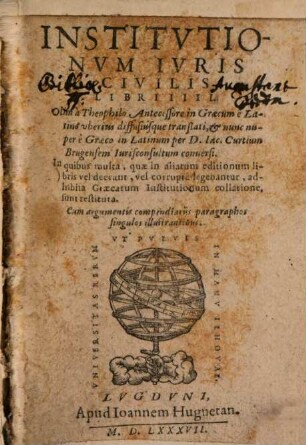 INSTITVTIO-
NVM IVRIS
CIVILIS
LIBRI IIII.
Olim à Theophilo Antecessore in Græcum è La-
tino vberius diffusiusque translati, & nunc nu-
per è Græco in Latinum per D. Iac. Curtium
Brugensem Iurisconsultum conuersi.
In quibus multa, quæ in aliarum editionum li-
bris vel deerant, vel corruptè legebantur, ad-
hibita Græcarum Institutionum collatione,
sunt restituta.
Cum argumentis compendiariis paragraphos
singulos illustrantibus.
VT PVLVIS
VNIVERSITAS RERVM
IN MANV IEHOVAE
LVGDVNI,
Apud Ioannem Huguetan.
M. D. LXXXVII.